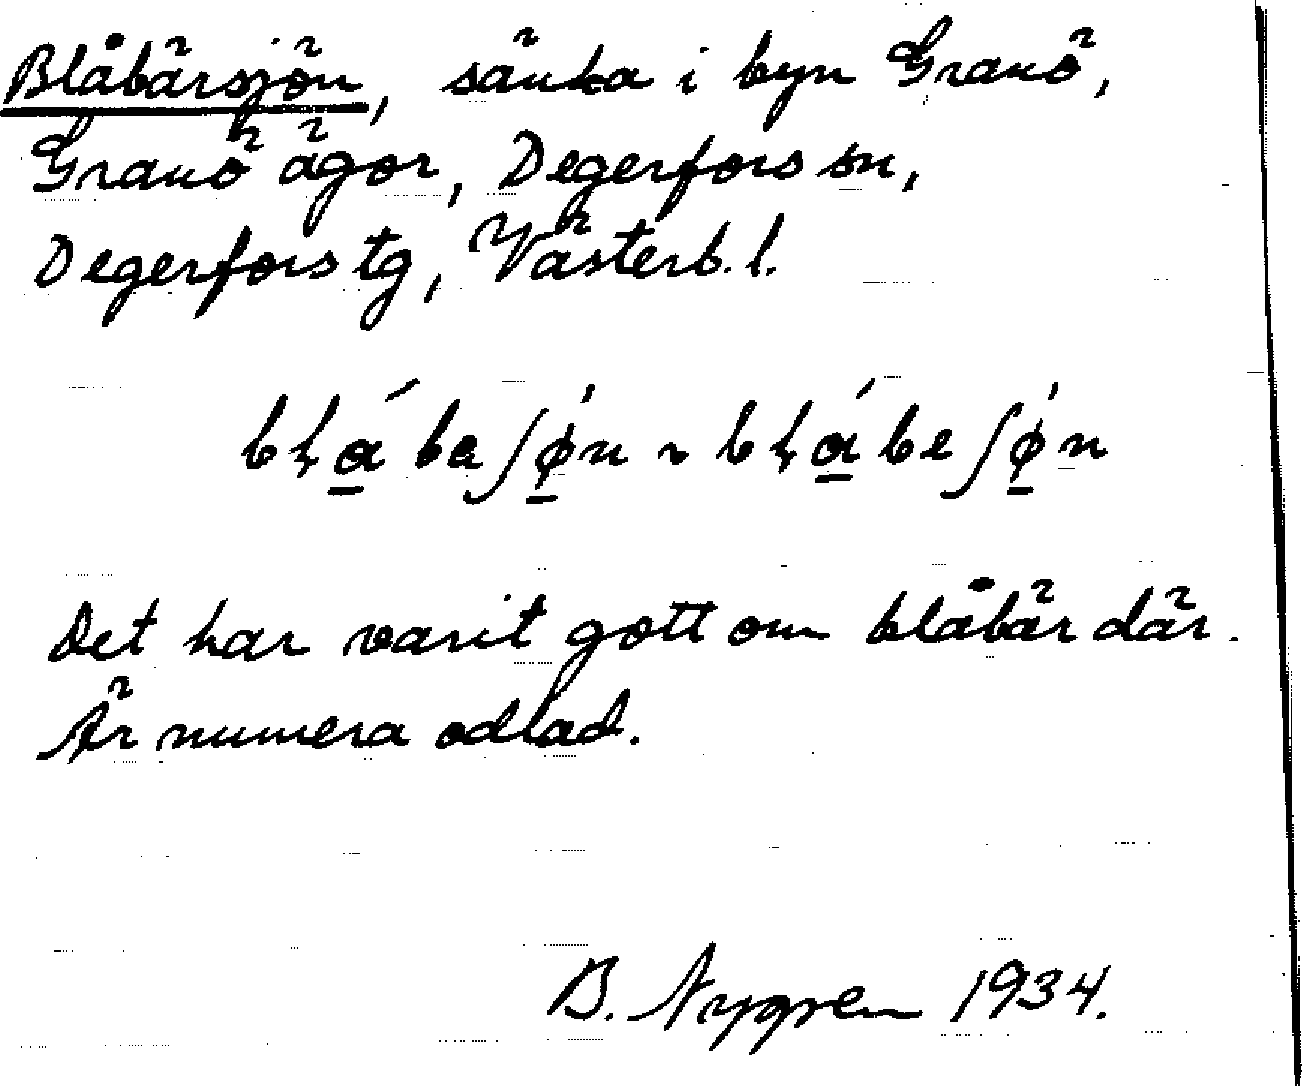 Blåbärsjön, sänka i byn Granö,
Granö ägor, Degerfors sn,
Degerfors tg, Västerb. l.
bḷά̲beʃǿ̲n ~ bḷά̲beʃǿ̲n
Det har varit gott om blåbär där.
Är numera odlad.
B. Nygren 1934.